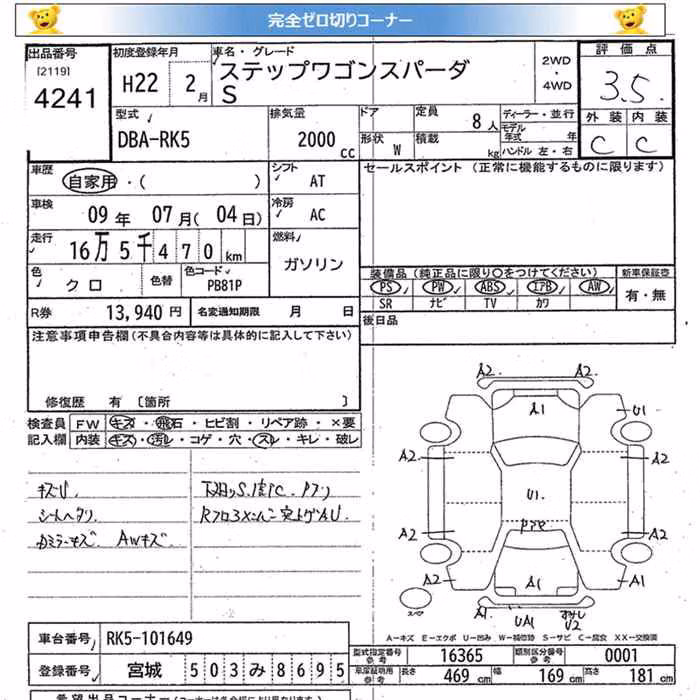 完全ゼロ切りコーナー
出品番号
[2119]
4241
初度登録年月
H22 2月
車名・グレード
ステップワゴンスパーダ
S
2WD
・
4WD
評価点
3.5
外装 内装
C C
型式
DBA-RK5
排気量
2000 cc
ドア
形状 W
定員 8人
積載 kg
ディーラー・並行
モデル年式 年
ハンドル 左・右
車歴
自家用・( )
シフト
AT
セールスポイント (正常に機能するものに限ります)
車検
09年 07月(04日)
冷房
AC
走行
16万5千470km
燃料
ガソリン
色
クロ
色替
色コード
PB81P
装備品(純正品に限り○をつけてください)
PS PW ABS エアB AW
SR ナビ TV カワ
新車保証書
有・無
R券 13,940円
名変通知期限 月 日
後日品
注意事項申告欄(不具合内容等は具体的に記入して下さい)
修復歴 有 [箇所 ]
検査員
記入欄
FW キズ・飛石・ヒビ割・リペア跡・×要
内装 キズ・汚レ・コゲ・穴・スレ・キレ・破レ
キズU
シートヘタリ
カミラーキズ AWキズ
A2 A2
A1
U1
A2 A2
U1
A2 A2
A2 A1
A1
スペア
A1 UA1 U2
A－キズ E－エクボ U－凹み W－補修跡 S－サビ C－腐食 XX－交換済
車台番号 RK5-101649
登録番号 宮城 503み8695
型式指定番号
参考
16365
類別区分番号
参考
0001
車庫証明用
参考
長さ 469cm 幅 169cm 高さ 181cm
希望出品コーナー